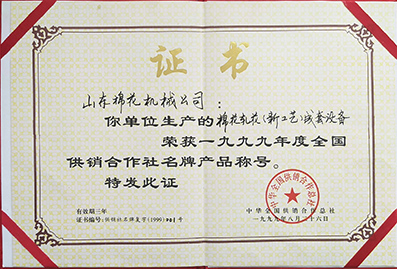 证书
山东棉花机械公司：
你单位生产的棉花轧花(新工艺)成套设备
荣获一九九九年度全国
供销合作社名牌产品称号。
特发此证
中华全国供销合作总社
有效期三年
中华全国供销合作总社
证书编号:供销社名牌复字(1999)201号
一九九九年八月二十六日